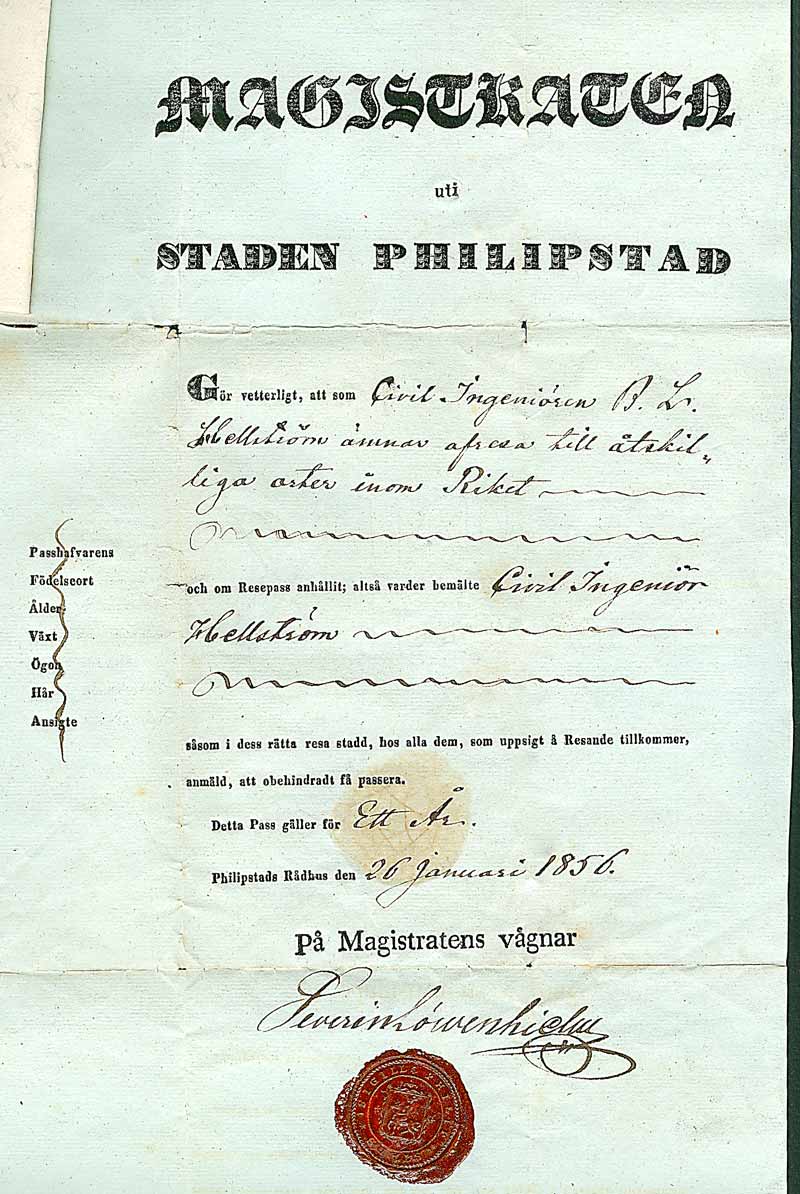 MAGISTRATEN
uti
STADEN PHILIPSTAD
Gör vetterligt, att som Civil Ingeniören B. L.
Hellström ämnar afresa till åtskil„
liga orter inom Riket
Passhafvarens
Födelseort
Ålder
Växt
Ögon
Hår
Ansigte
och om Resepass anhållit; altså varder bemälte Civil Ingeniör
Hellström
såsom i dess rätta resa stadd, hos alla dem, som uppsigt å Resande tillkommer,
anmäld, att obehindradt få passera.
Detta Pass gäller för Ett År.
Philipstads Rådhus den 26 Januari 1856.
På Magistratens vågnar
Severin Löwenhielm